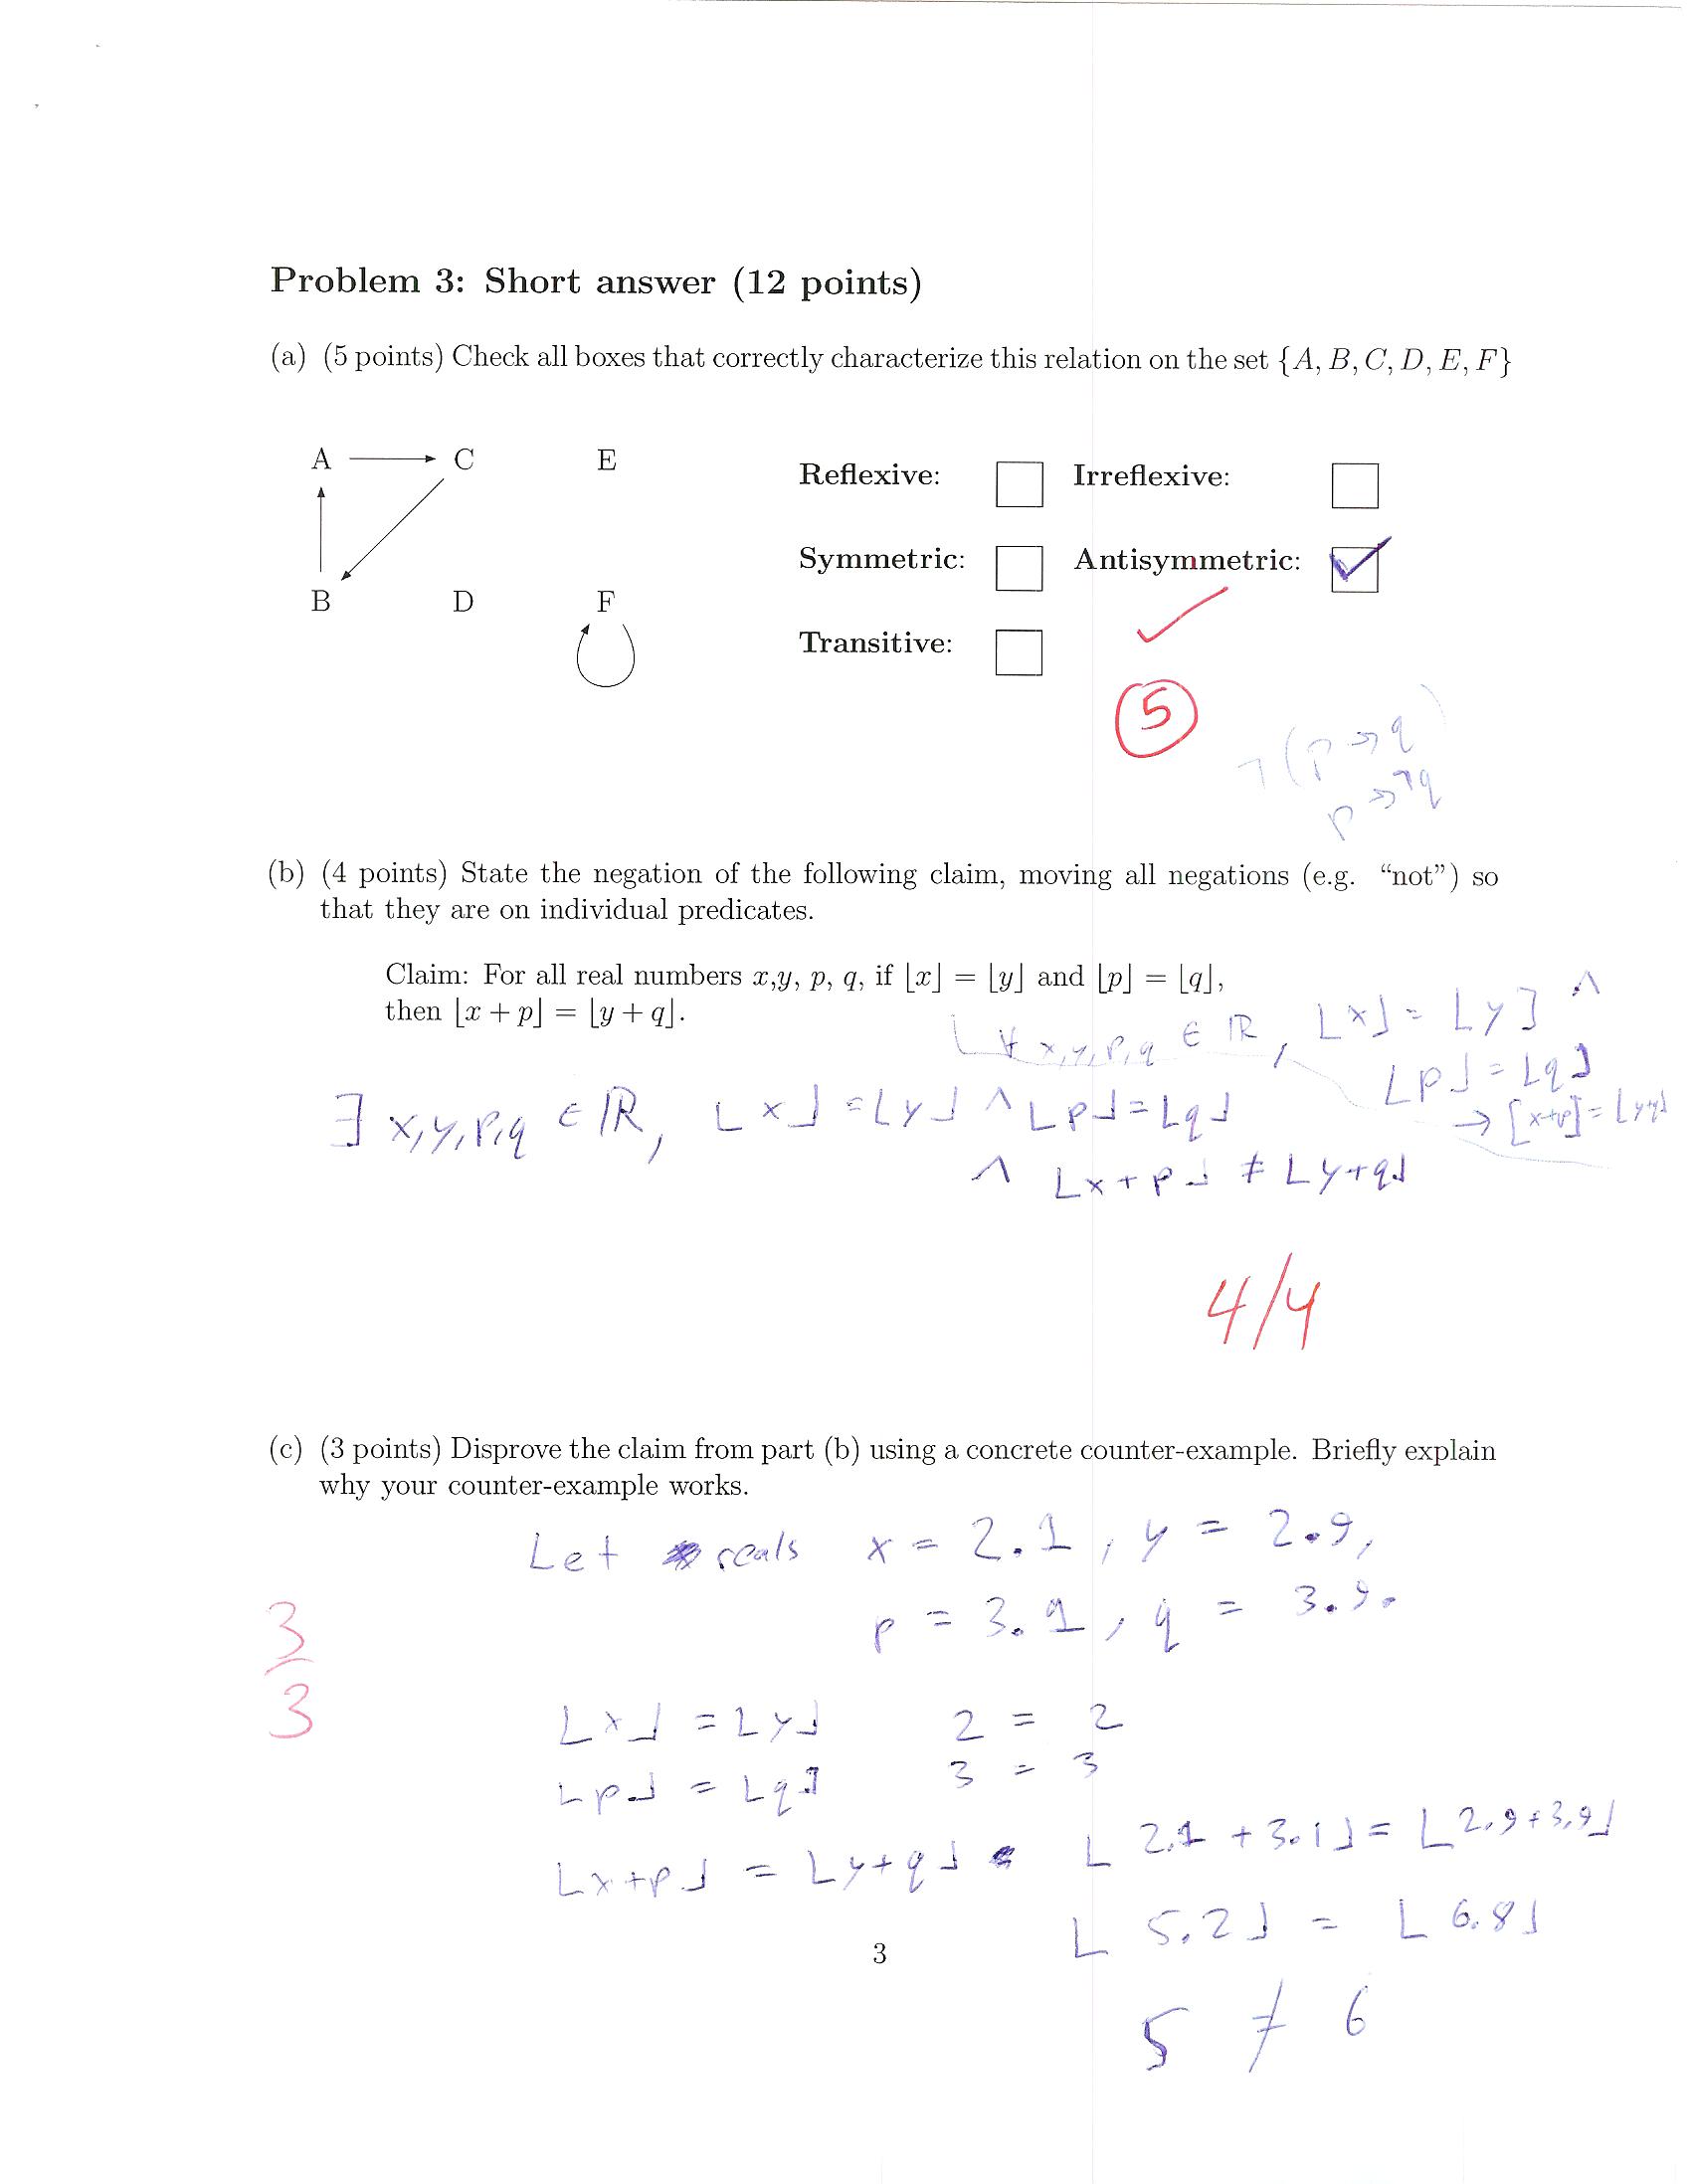 Problem 3: Short answer (12 points)
(a) (5 points) Check all boxes that correctly characterize this relation on the set {A, B, C, D, E, F}
A C E
B D F
Reflexive: Irreflexive:
Symmetric: Antisymmetric: ✓
Transitive:
✓
5
¬(p → q)
p → ¬q
(b) (4 points) State the negation of the following claim, moving all negations (e.g. “not”) so
that they are on individual predicates.
Claim: For all real numbers x,y, p, q, if ⌊x⌋ = ⌊y⌋ and ⌊p⌋ = ⌊q⌋,
then ⌊x + p⌋ = ⌊y + q⌋.
∀ x,y,p,q ∈ ℝ, ⌊x⌋ = ⌊y⌋ ∧
⌊p⌋ = ⌊q⌋
→ ⌊x+p⌋ = ⌊y+q⌋
∃ x,y,p,q ∈ ℝ, ⌊x⌋ = ⌊y⌋ ∧ ⌊p⌋ = ⌊q⌋
∧ ⌊x+p⌋ ≠ ⌊y+q⌋
4/4
(c) (3 points) Disprove the claim from part (b) using a concrete counter-example. Briefly explain
why your counter-example works.
Let reals x = 2.1, y = 2.9,
p = 3.1, q = 3.9.
3/3
⌊x⌋ = ⌊y⌋ 2 = 2
⌊p⌋ = ⌊q⌋ 3 = 3
⌊x+p⌋ = ⌊y+q⌋ ⌊2.1 + 3.1⌋ = ⌊2.9+3.9⌋
⌊5.2⌋ = ⌊6.8⌋
5 ≠ 6
3